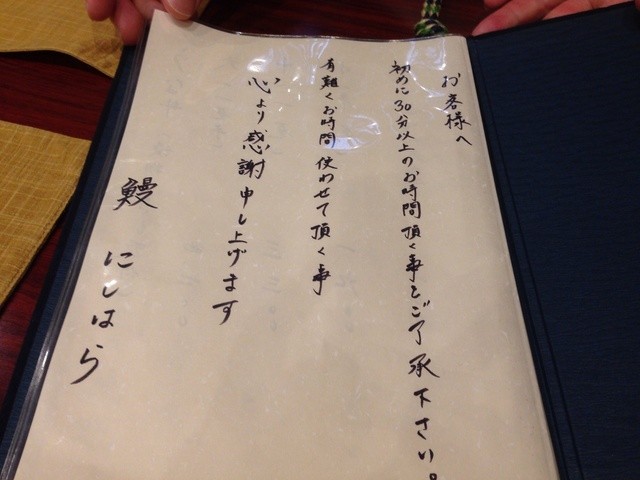 お客様へ
初めに30分以上のお時間頂く事をご了承下さい。
有難くお時間使わせて頂く事
心より感謝申し上げます
鰻 にしはら